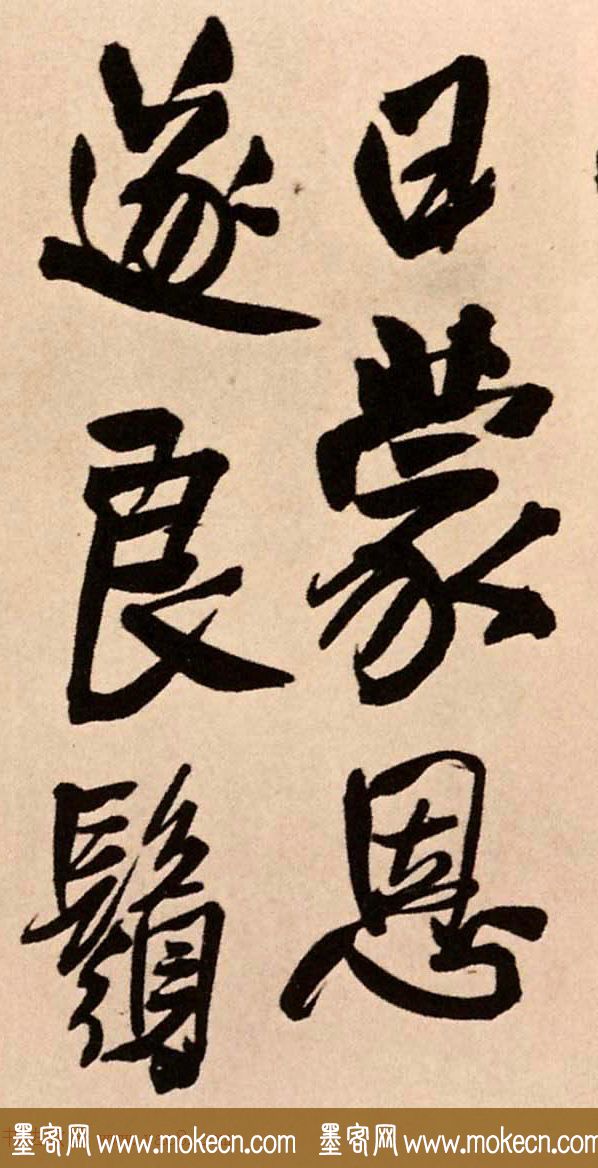 日蒙恩
遂良鬚
墨客网 www.mokecn.com 墨客网 www.mokecn.com